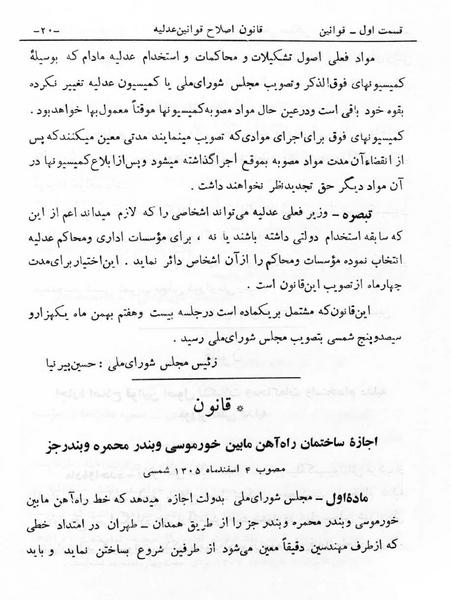 قسمت اول ـ قوانین
قانون اصلاح قوانین عدلیه
-۲۰-
مواد فعلی اصول تشکیلات و محاکمات و استخدام عدلیه مادام که بوسیلهٔ
کمیسیونهای فوق الذکر وتصویب مجلس شورای ملی یا کمیسیون عدلیه تغییر نکرده
بقوه خود باقی است ودرعین حال مواد مصوبه کمیسیونها موقتاً معمول بها خواهد بود.
کمیسیونهای فوق برای اجرای موادی که تصویب مینمایند مدتی معین میکنند که پس
از انقضاء آن مدت مواد مصوبه بموقع اجرا گذاشته میشود وپس از ابلاغ کمیسیونها در
آن مواد دیگر حق تجدید نظر نخواهند داشت .
تبصره ـ وزیر فعلی عدلیه می تواند اشخاصی را که لازم میداند اعم از این
که سابقه استخدام دولتی داشته باشند یا نه ، برای مؤسسات اداری ومحاکم عدلیه
انتخاب نموده مؤسسات ومحاکم را از آن اشخاص دائر نماید . این اختیار برای مدت
چهار ماه از تصویب این قانون است .
این قانون که مشتمل بر یکماده است در جلسه بیست وهفتم بهمن ماه یکهزار و
سیصد وپنج شمسی بتصویب مجلس شورای ملی رسید .
رئیس مجلس شورای ملی : حسین پیرنیا
* قانون
اجازهٔ ساختمان راه آهن مابین خور موسی وبندر محمره وبندر جز
مصوب ۴ اسفند ماه ۱۳۰۵ شمسی
مادهٔ اول ـ مجلس شورای ملی بدولت اجازه میدهد که خط راه آهن مابین
خور موسی وبندر محمره وبندر جز را از طریق همدان ـ طهران در امتداد خطی
که از طرف مهندسین دقیقاً معین می شود از طرفین شروع بساختن نماید و باید